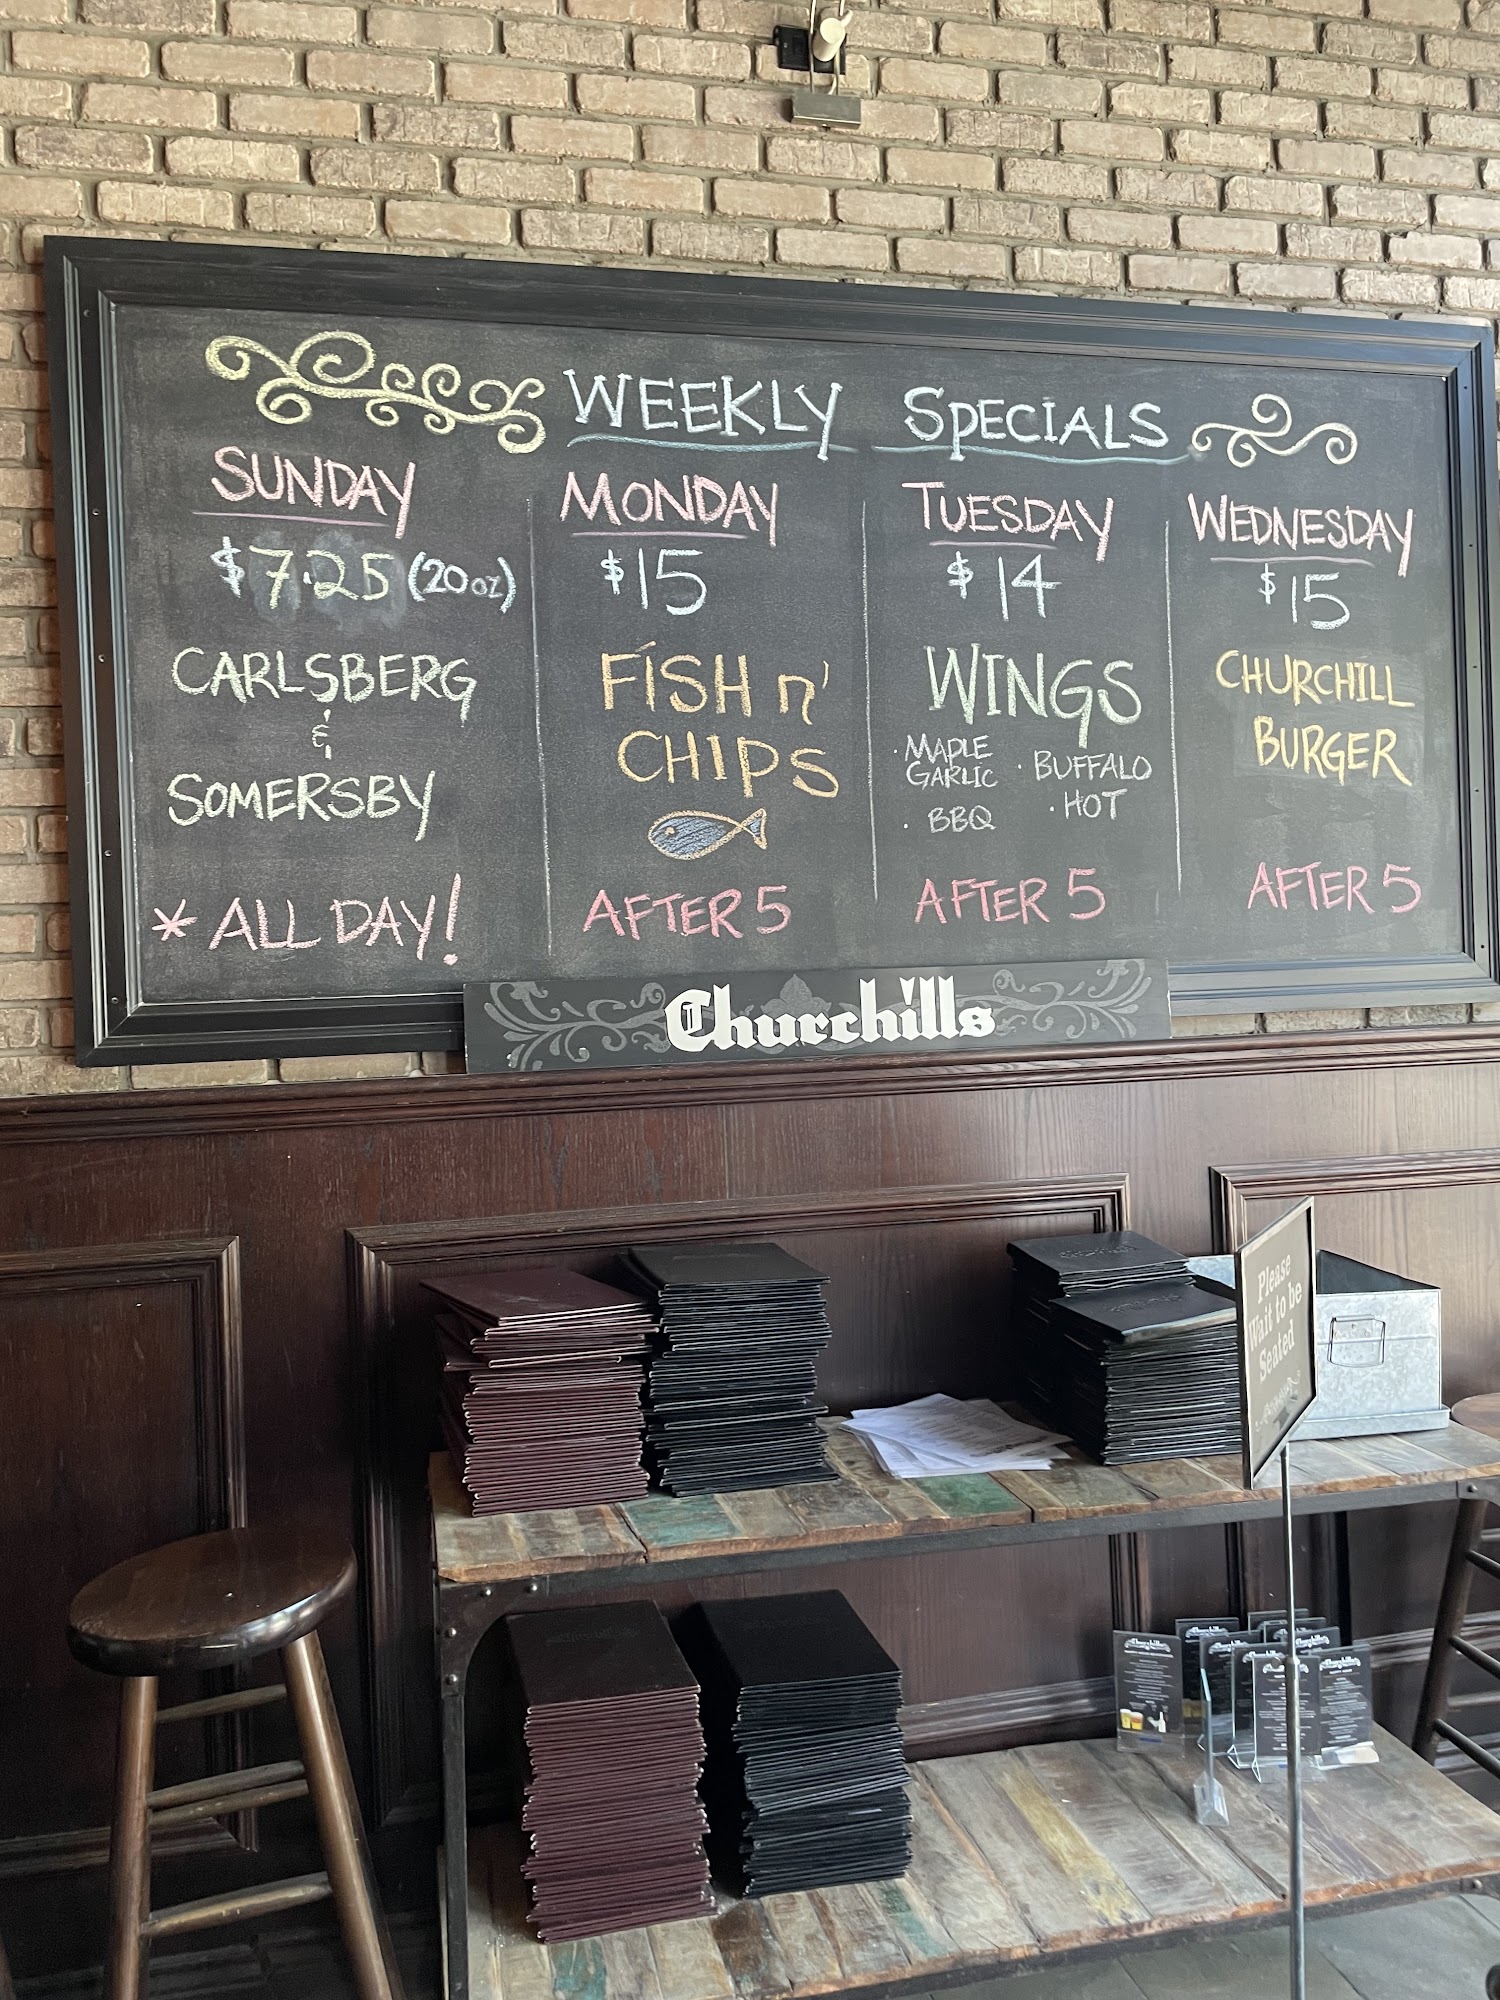 WEEKLY SPECIALS
SUNDAY
$7.25 (20 oz)
CARLSBERG
&
SOMERSBY
* ALL DAY!
MONDAY
$15
FISH n'
CHIPS
AFTER 5
TUESDAY
$14
WINGS
· MAPLE
GARLIC
· BBQ
· BUFFALO
· HOT
AFTER 5
WEDNESDAY
$15
CHURCHILL
BURGER
AFTER 5
Churchills
Please
Wait to be
Seated
Churchills